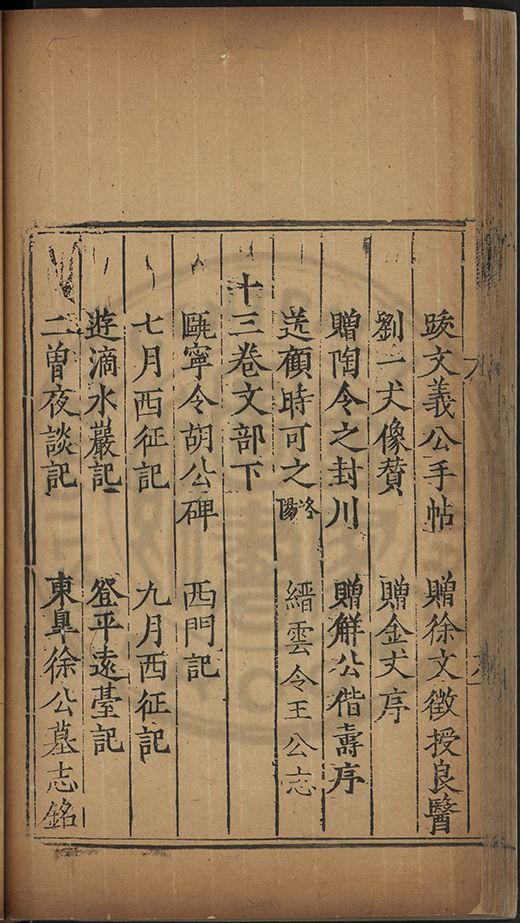 跋文義公手帖 贈徐文徵授良醫
劉一丈像贊 贈金丈序
贈陶令之封川 贈解公偕壽序
送顧時可之洛陽 縉雲令王公志
十三卷文部下
甌寧令胡公碑 西門記
七月西征記 九月西征記
遊滴水巖記 登平遠臺記
二曾夜談記 東皐徐公墓志銘